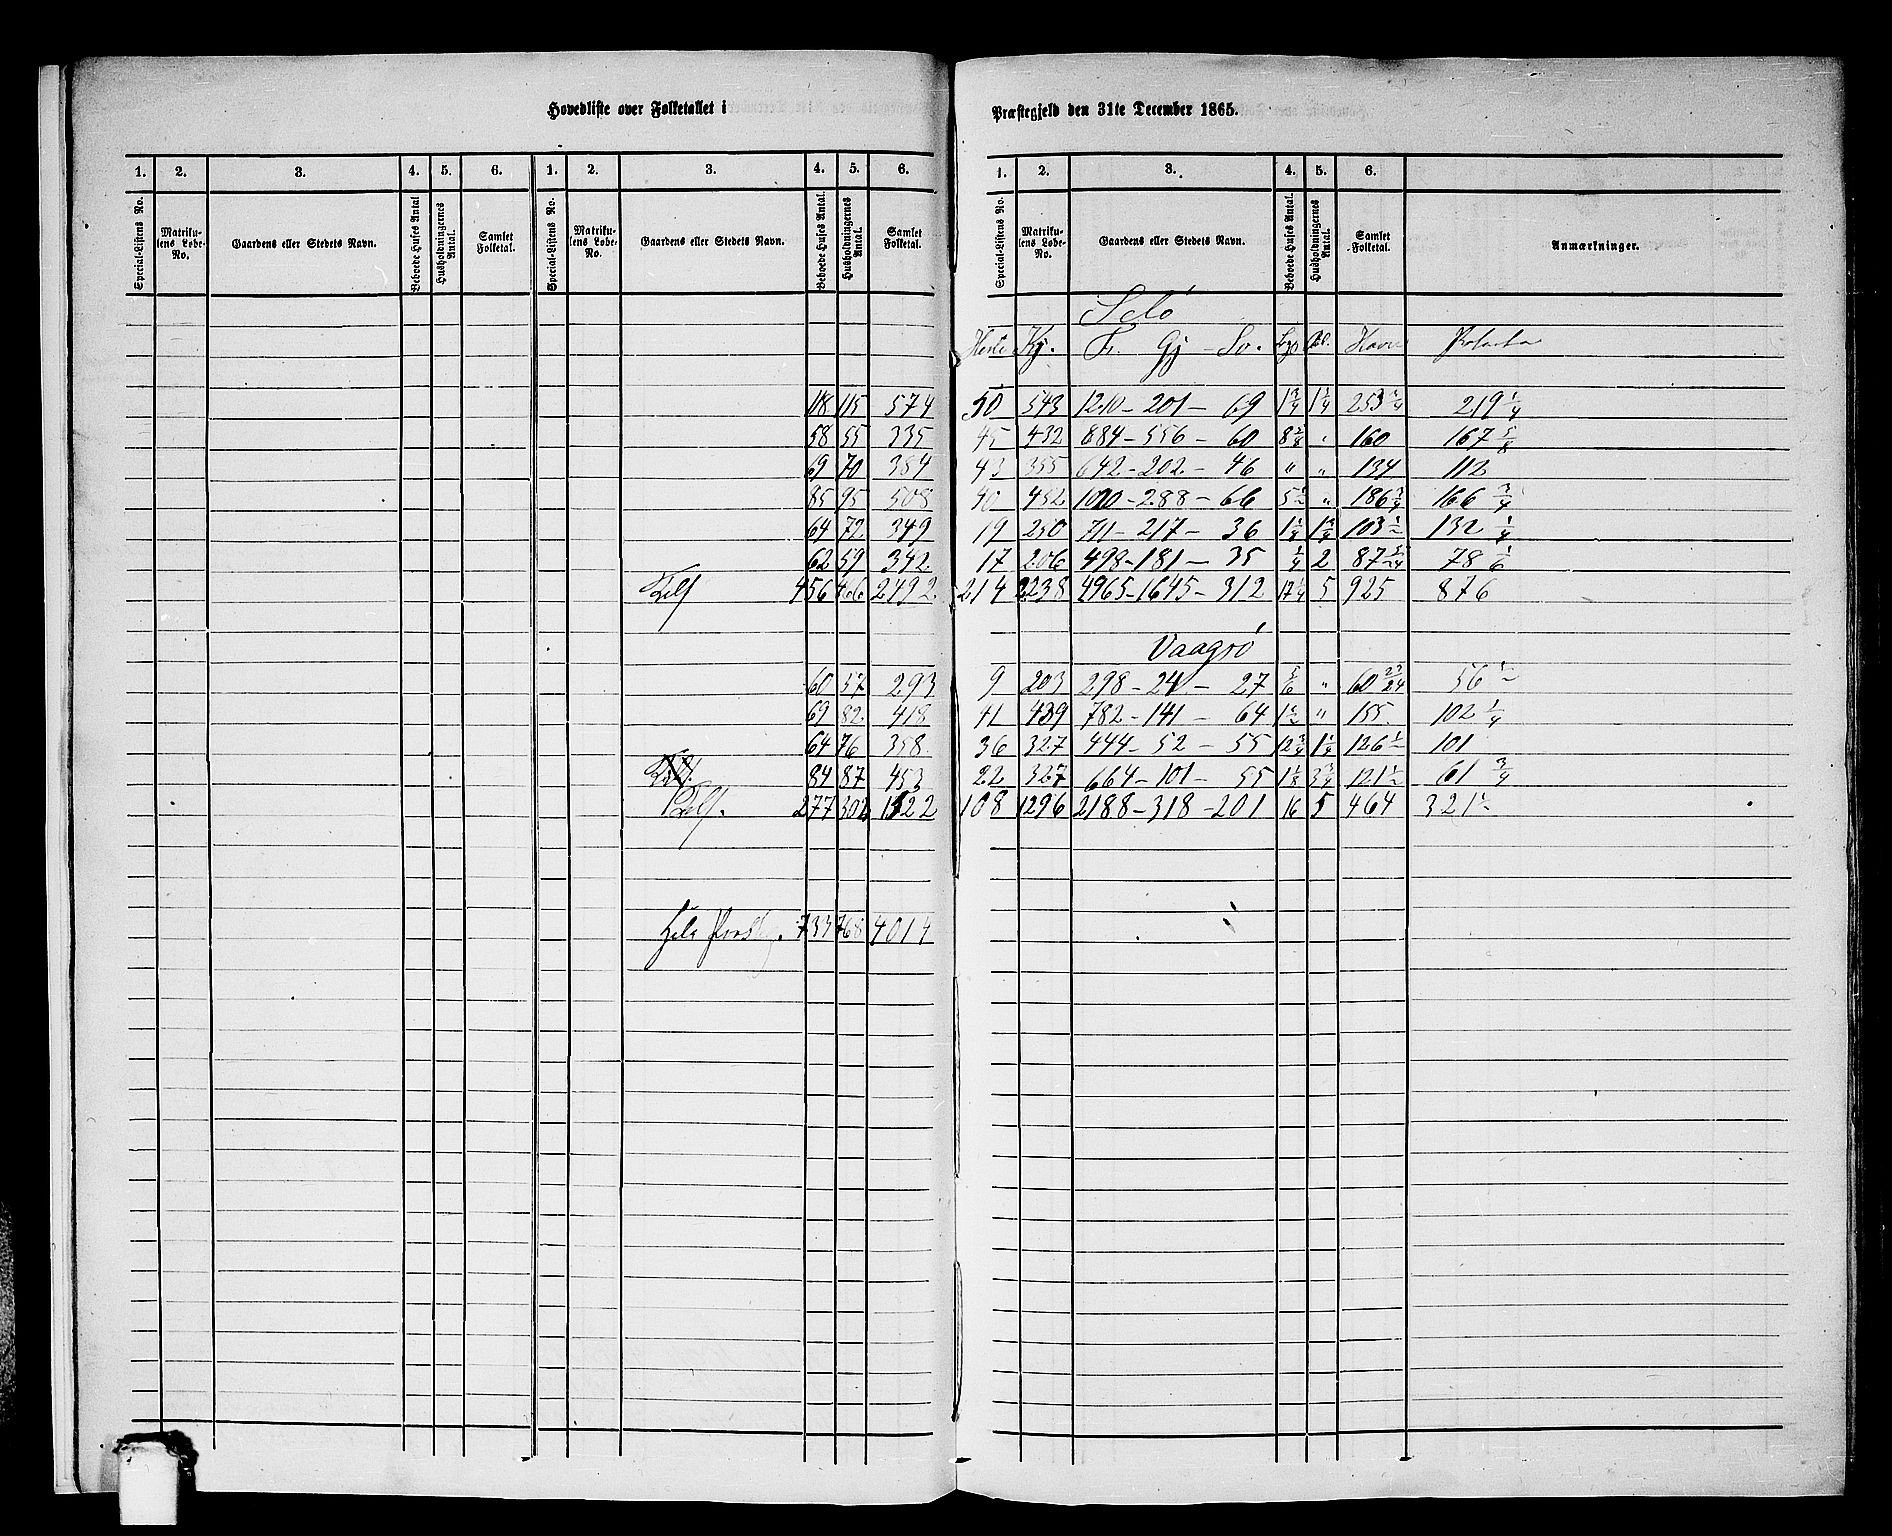 Hovedliste over Folketallet i
Præstegjeld den 31te December 1865.
1. 2. 3. 4. 5. 6. 1. 2. 3. 4. 5. 6. 1. 2. 3. 4. 5. 6.
Special-Listens No. Matrikulens Løbe-No. Gaardens eller Stedets Navn. Beboede Huses Antal Husholdningernes Antal. Samlet Folketal. Special-Listens No. Matrikulens Løbe-No. Gaardens eller Stedets Navn. Beboede Huses Antal. Husholdningernes Antal. Samlet Folketal. Special-Listens No. Matrikulens Løbe-No. Gaardens eller Stedets Navn. Beboede Huses Antal. Husholdningernes Antal. Samlet Folketal. Anmærkninger.
Selø
Heste Kj. F. Gj - Sv. Byg Bl. Havre
118 115 574 50 543 1210 - 201 - 69 1 3/4 1 1/4 253 3/4 219 1/4
58 55 335 45 432 884 - 556 - 60 8 5/8 " 160 167 5/8
69 70 354 43 355 642 - 202 - 46 " " 134 112
85 95 508 40 452 1020 - 288 - 66 5 1/2 " 186 3/4 166 3/4
64 72 349 19 250 711 - 217 - 36 1 1/4 1 3/4 103 1/2 132 1/4
62 59 342 17 206 498 - 181 - 35 1/4 2 87 5/24 78 1/6
456 466 2492 214 2238 4965 - 1645 - 312 17 1/4 5 925 876
Vaagsø
60 57 293 9 203 298 - 24 - 27 5/6 " 60 23/24 56 1/2
69 82 418 41 439 782 - 141 - 64 1 1/2 " 155 102 1/4
64 76 358 36 327 444 - 52 - 55 12 3/4 1 1/4 126 1/2 101
84 87 453 22 327 664 - 101 - 55 1 1/8 3 3/4 121 1/2 61 3/4
277 302 1522 108 1296 2188 - 318 - 201 16 5 464 321 1/2
Hele Præstgj. 733 768 4014